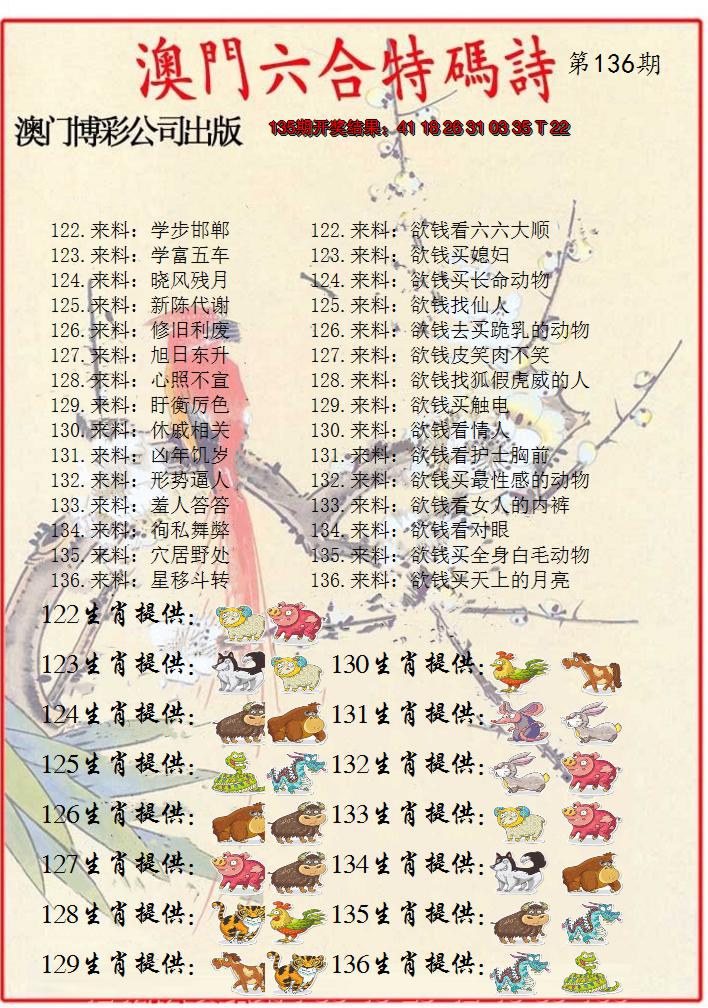 澳門六合特碼詩 第136期
澳门博彩公司出版 135期开奖结果：41 18 26 31 03 35 T 22
122.来料：学步邯郸 122.来料：欲钱看六六大顺
123.来料：学富五车 123.来料：欲钱买媳妇
124.来料：晓风残月 124.来料：欲钱买长命动物
125.来料：新陈代谢 125.来料：欲钱找仙人
126.来料：修旧利废 126.来料：欲钱去买跪乳的动物
127.来料：旭日东升 127.来料：欲钱皮笑肉不笑
128.来料：心照不宣 128.来料：欲钱找狐假虎威的人
129.来料：盱衡厉色 129.来料：欲钱买触电
130.来料：休戚相关 130.来料：欲钱看情人
131.来料：凶年饥岁 131.来料：欲钱看护士胸前
132.来料：形势逼人 132.来料：欲钱买最性感的动物
133.来料：羞人答答 133.来料：欲钱看女人的内裤
134.来料：徇私舞弊 134.来料：欲钱看对眼
135.来料：穴居野处 135.来料：欲钱买全身白毛动物
136.来料：星移斗转 136.来料：欲钱买天上的月亮
122生肖提供：
123生肖提供： 130生肖提供：
124生肖提供： 131生肖提供：
125生肖提供： 132生肖提供：
126生肖提供： 133生肖提供：
127生肖提供： 134生肖提供：
128生肖提供： 135生肖提供：
129生肖提供： 136生肖提供：